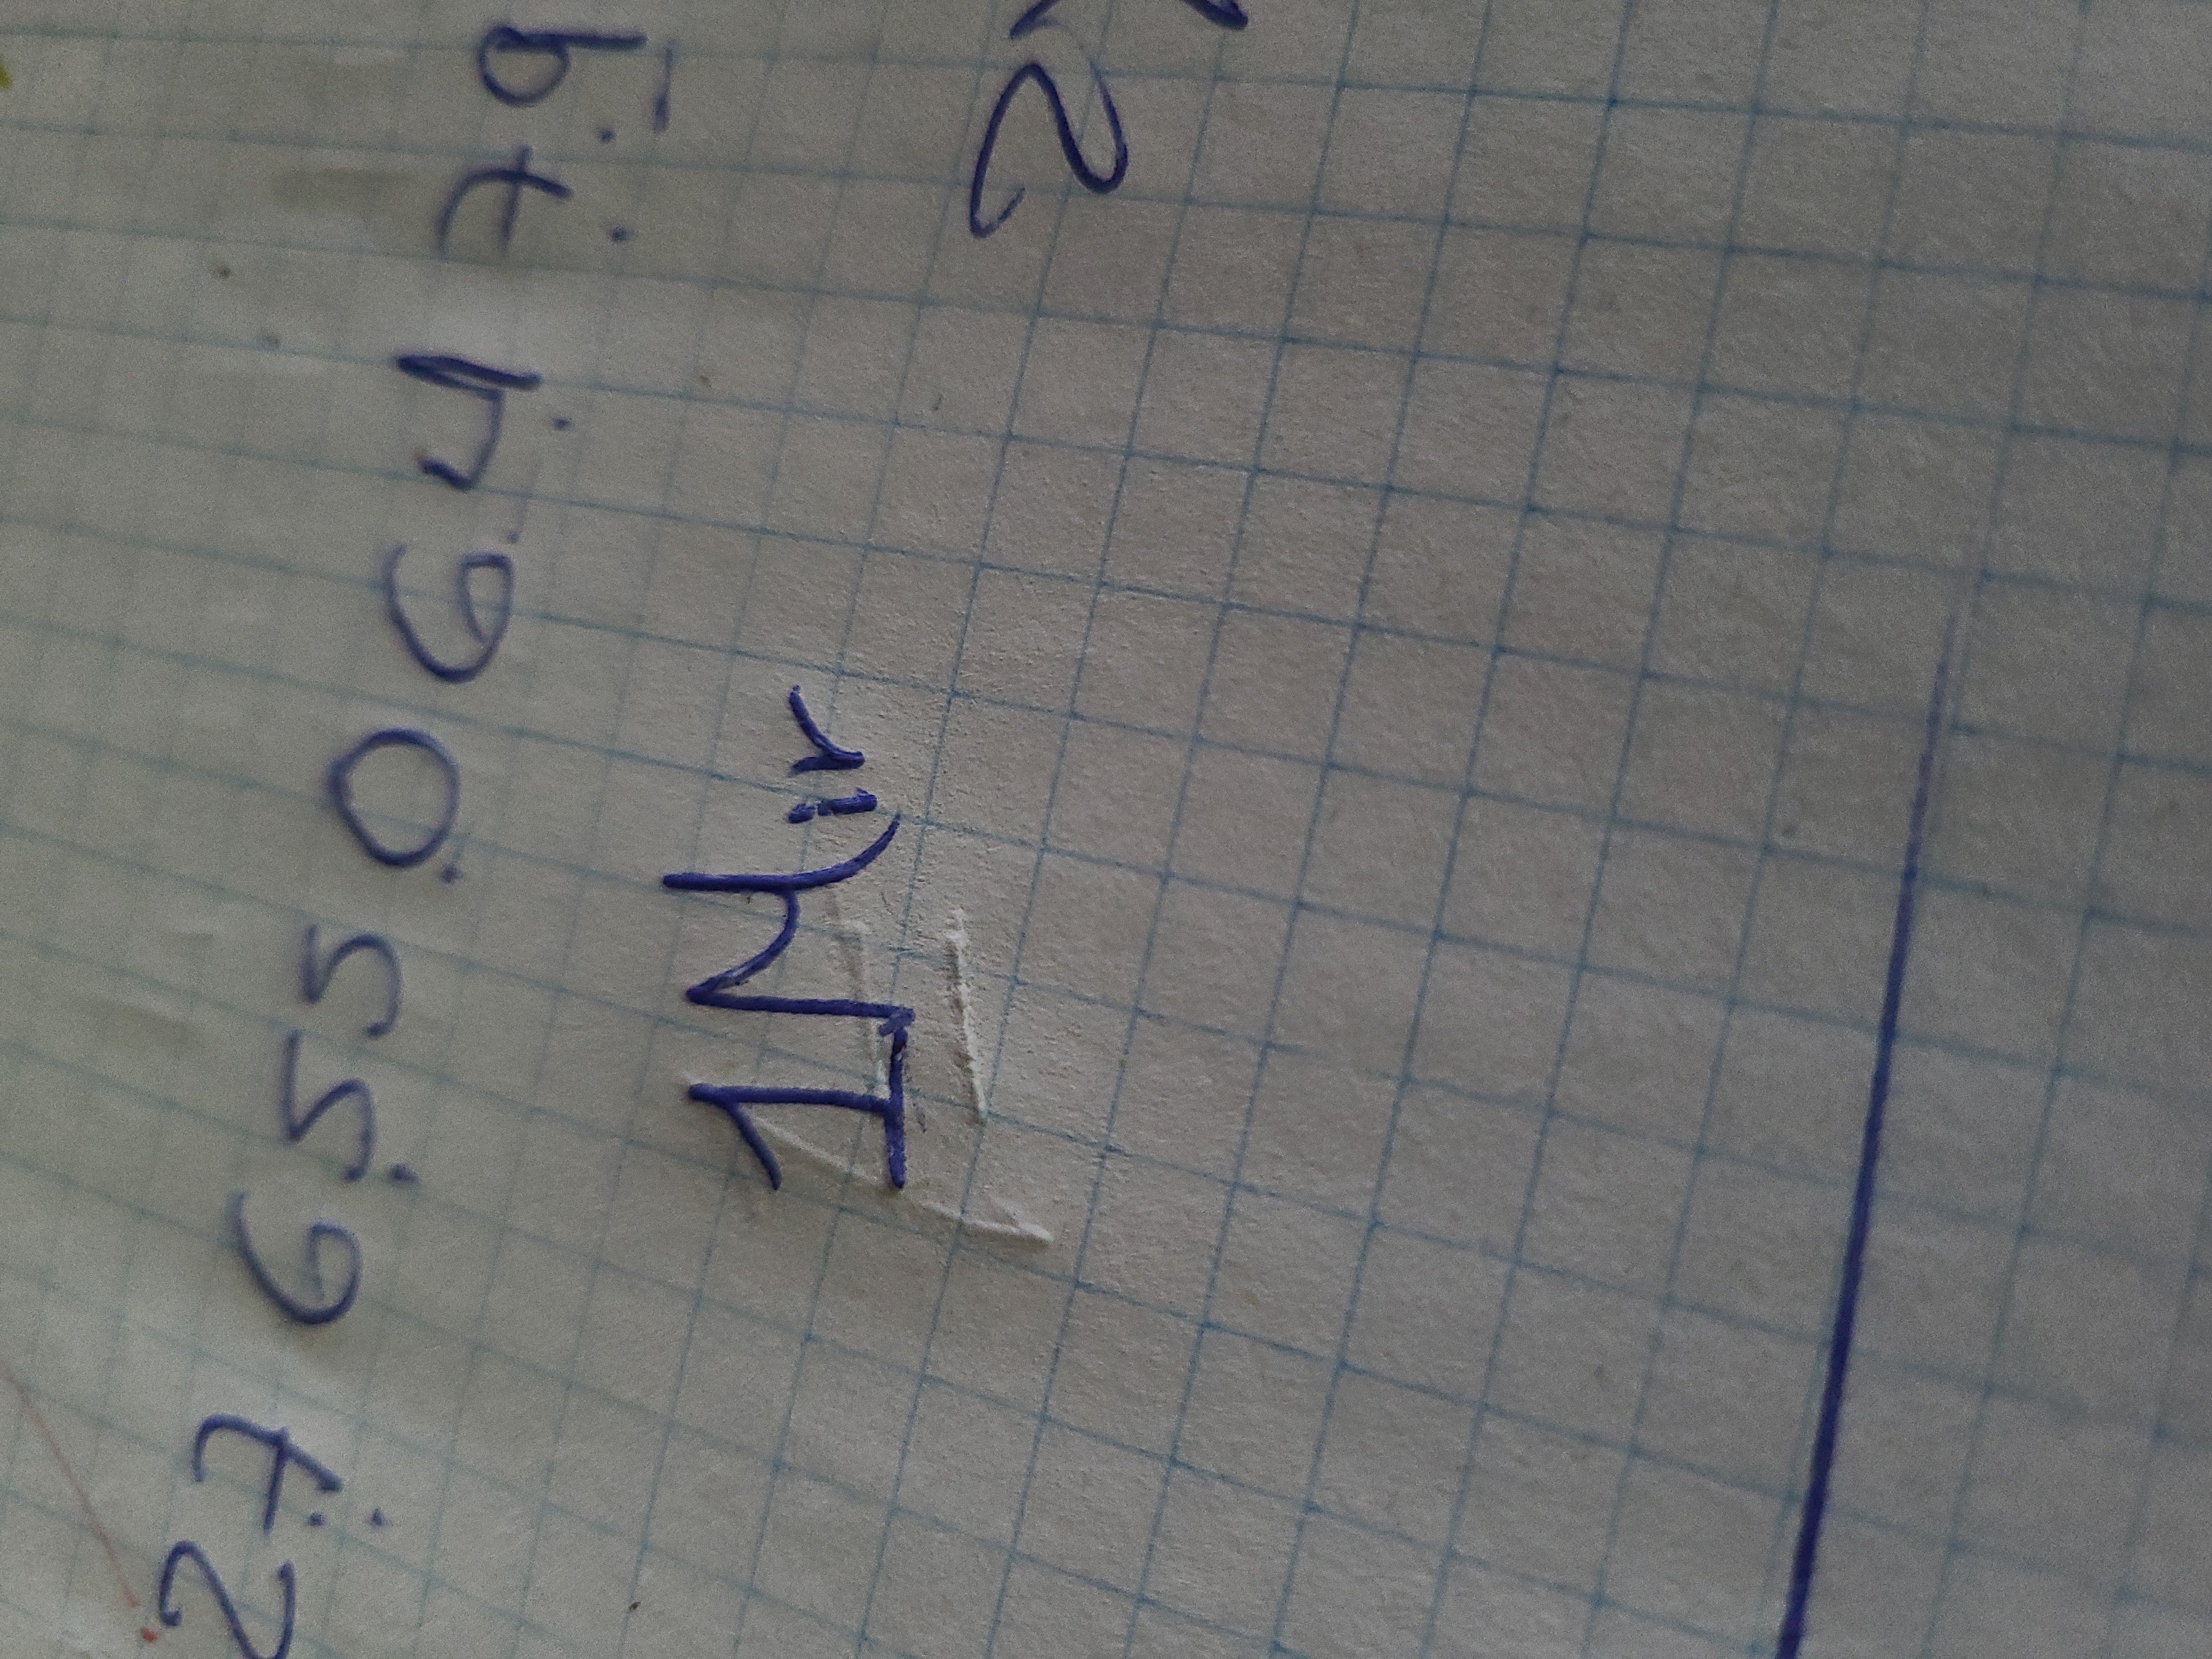 27 655 064 79
1Mir
2